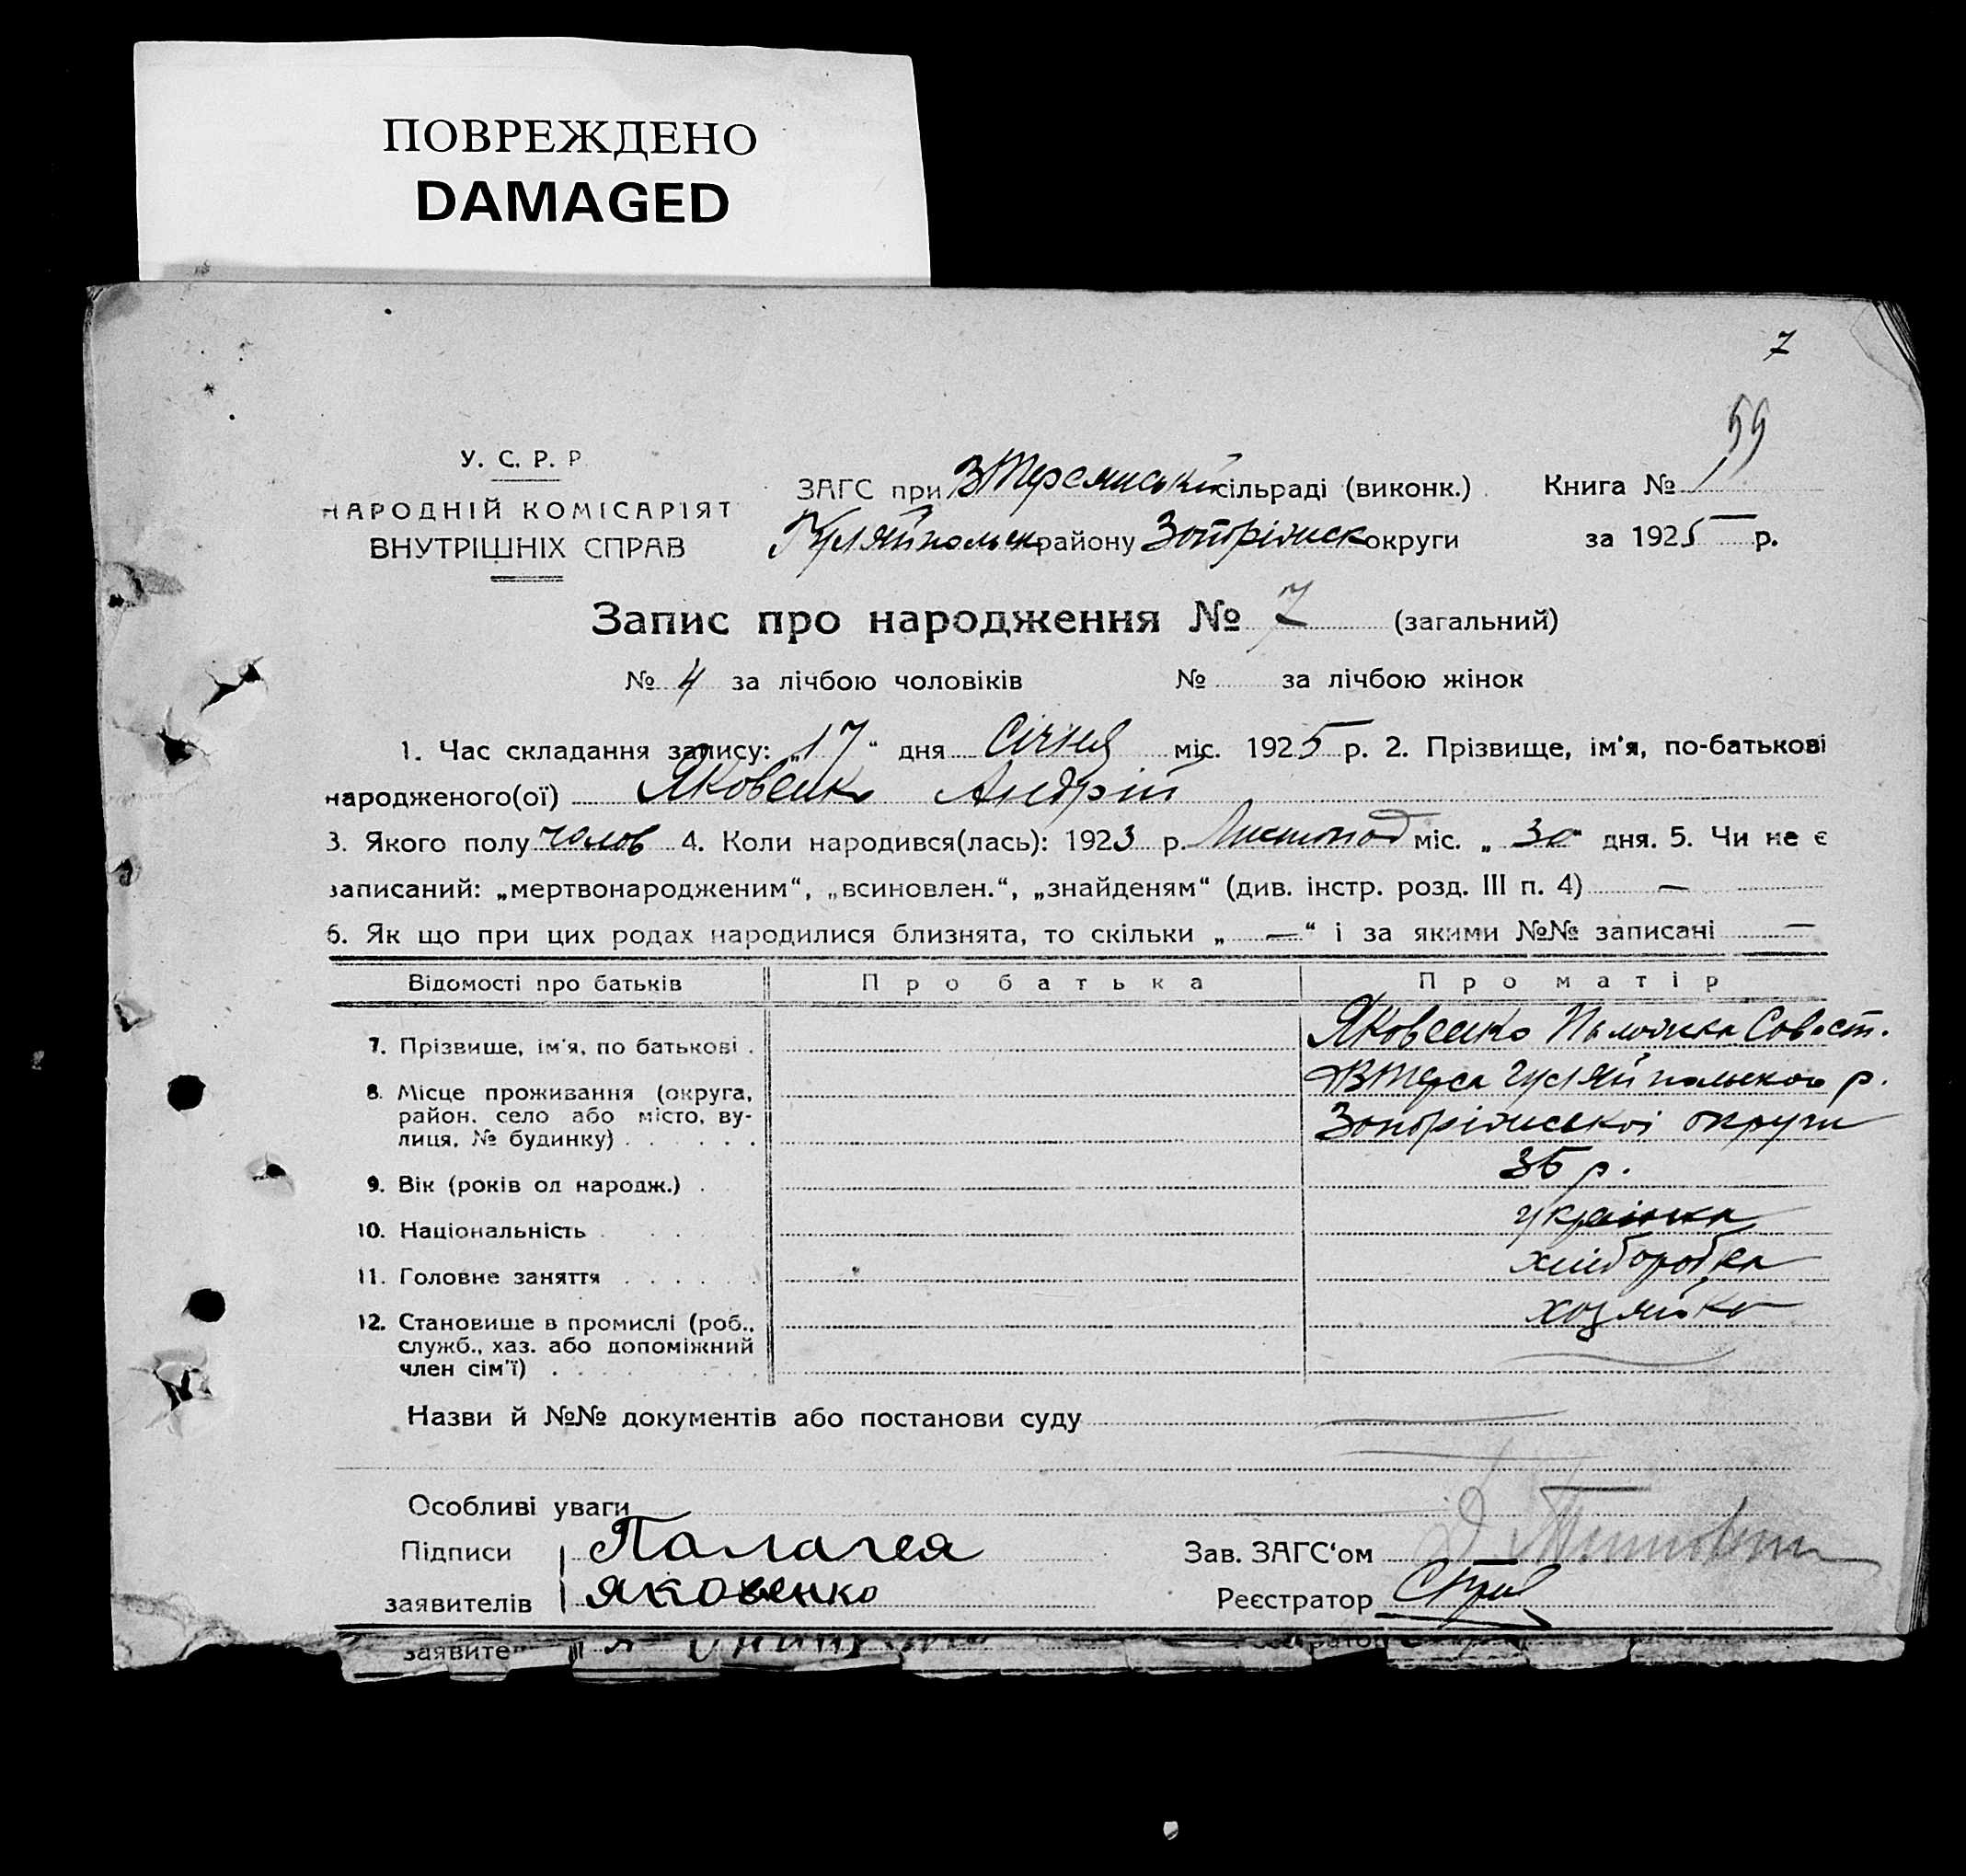 ПОВРЕЖДЕНО
DAMAGED
7
59
У. С. Р. Р
НАРОДНІЙ КОМІСАРІЯТ
ВНУТРІШНІХ СПРАВ
ЗАГС при ВТерсянській сільраді (виконк.) Книга № 1
Гуляйпольск району Запоріжск округи за 1925 р.
Запис про народження № 7 (загальний)
№ 4 за лічбою чоловіків № за лічбою жінок
1. Час складання запису: „17“ дня Січня міс. 1925 р. 2. Прізвище, ім'я, по-батькові
народженого(ої) Яковенко Андрій
3. Якого полу чолов 4. Коли народився(лась): 1923 р. Листопад міс. „30“ дня. 5. Чи не є
записаний: „мертвонародженим“, „всиновлен.“, „знайденям“ (див. інстр. розд. III п. 4) —
6. Як що при цих родах народилися близнята, то скільки „—“ і за якими №№ записані —
Відомості про батьків Про батька Про матір
7. Прізвище, ім'я, по батькові . Яковенко Совост.
8. Місце проживання (округа, ВТерса Гуляйпольского р.
район, село або місто, ву-
лиця, № будинку) . . . . . . Запоріжської округи
9. Вік (років од народж.) . 35 р.
10. Національність . . . . українка
11. Головне заняття . . . . . . хліборобка
12. Становище в промислі (роб., хозяйка
служб., хаз. або допоміжний
член сім'ї) . . . . . . .
Назви й №№ документів або постанови суду
Особливі уваги
Підписи Палагея Зав. ЗАГС‘ом
заявителів Яковенко Реєстратор
заявите